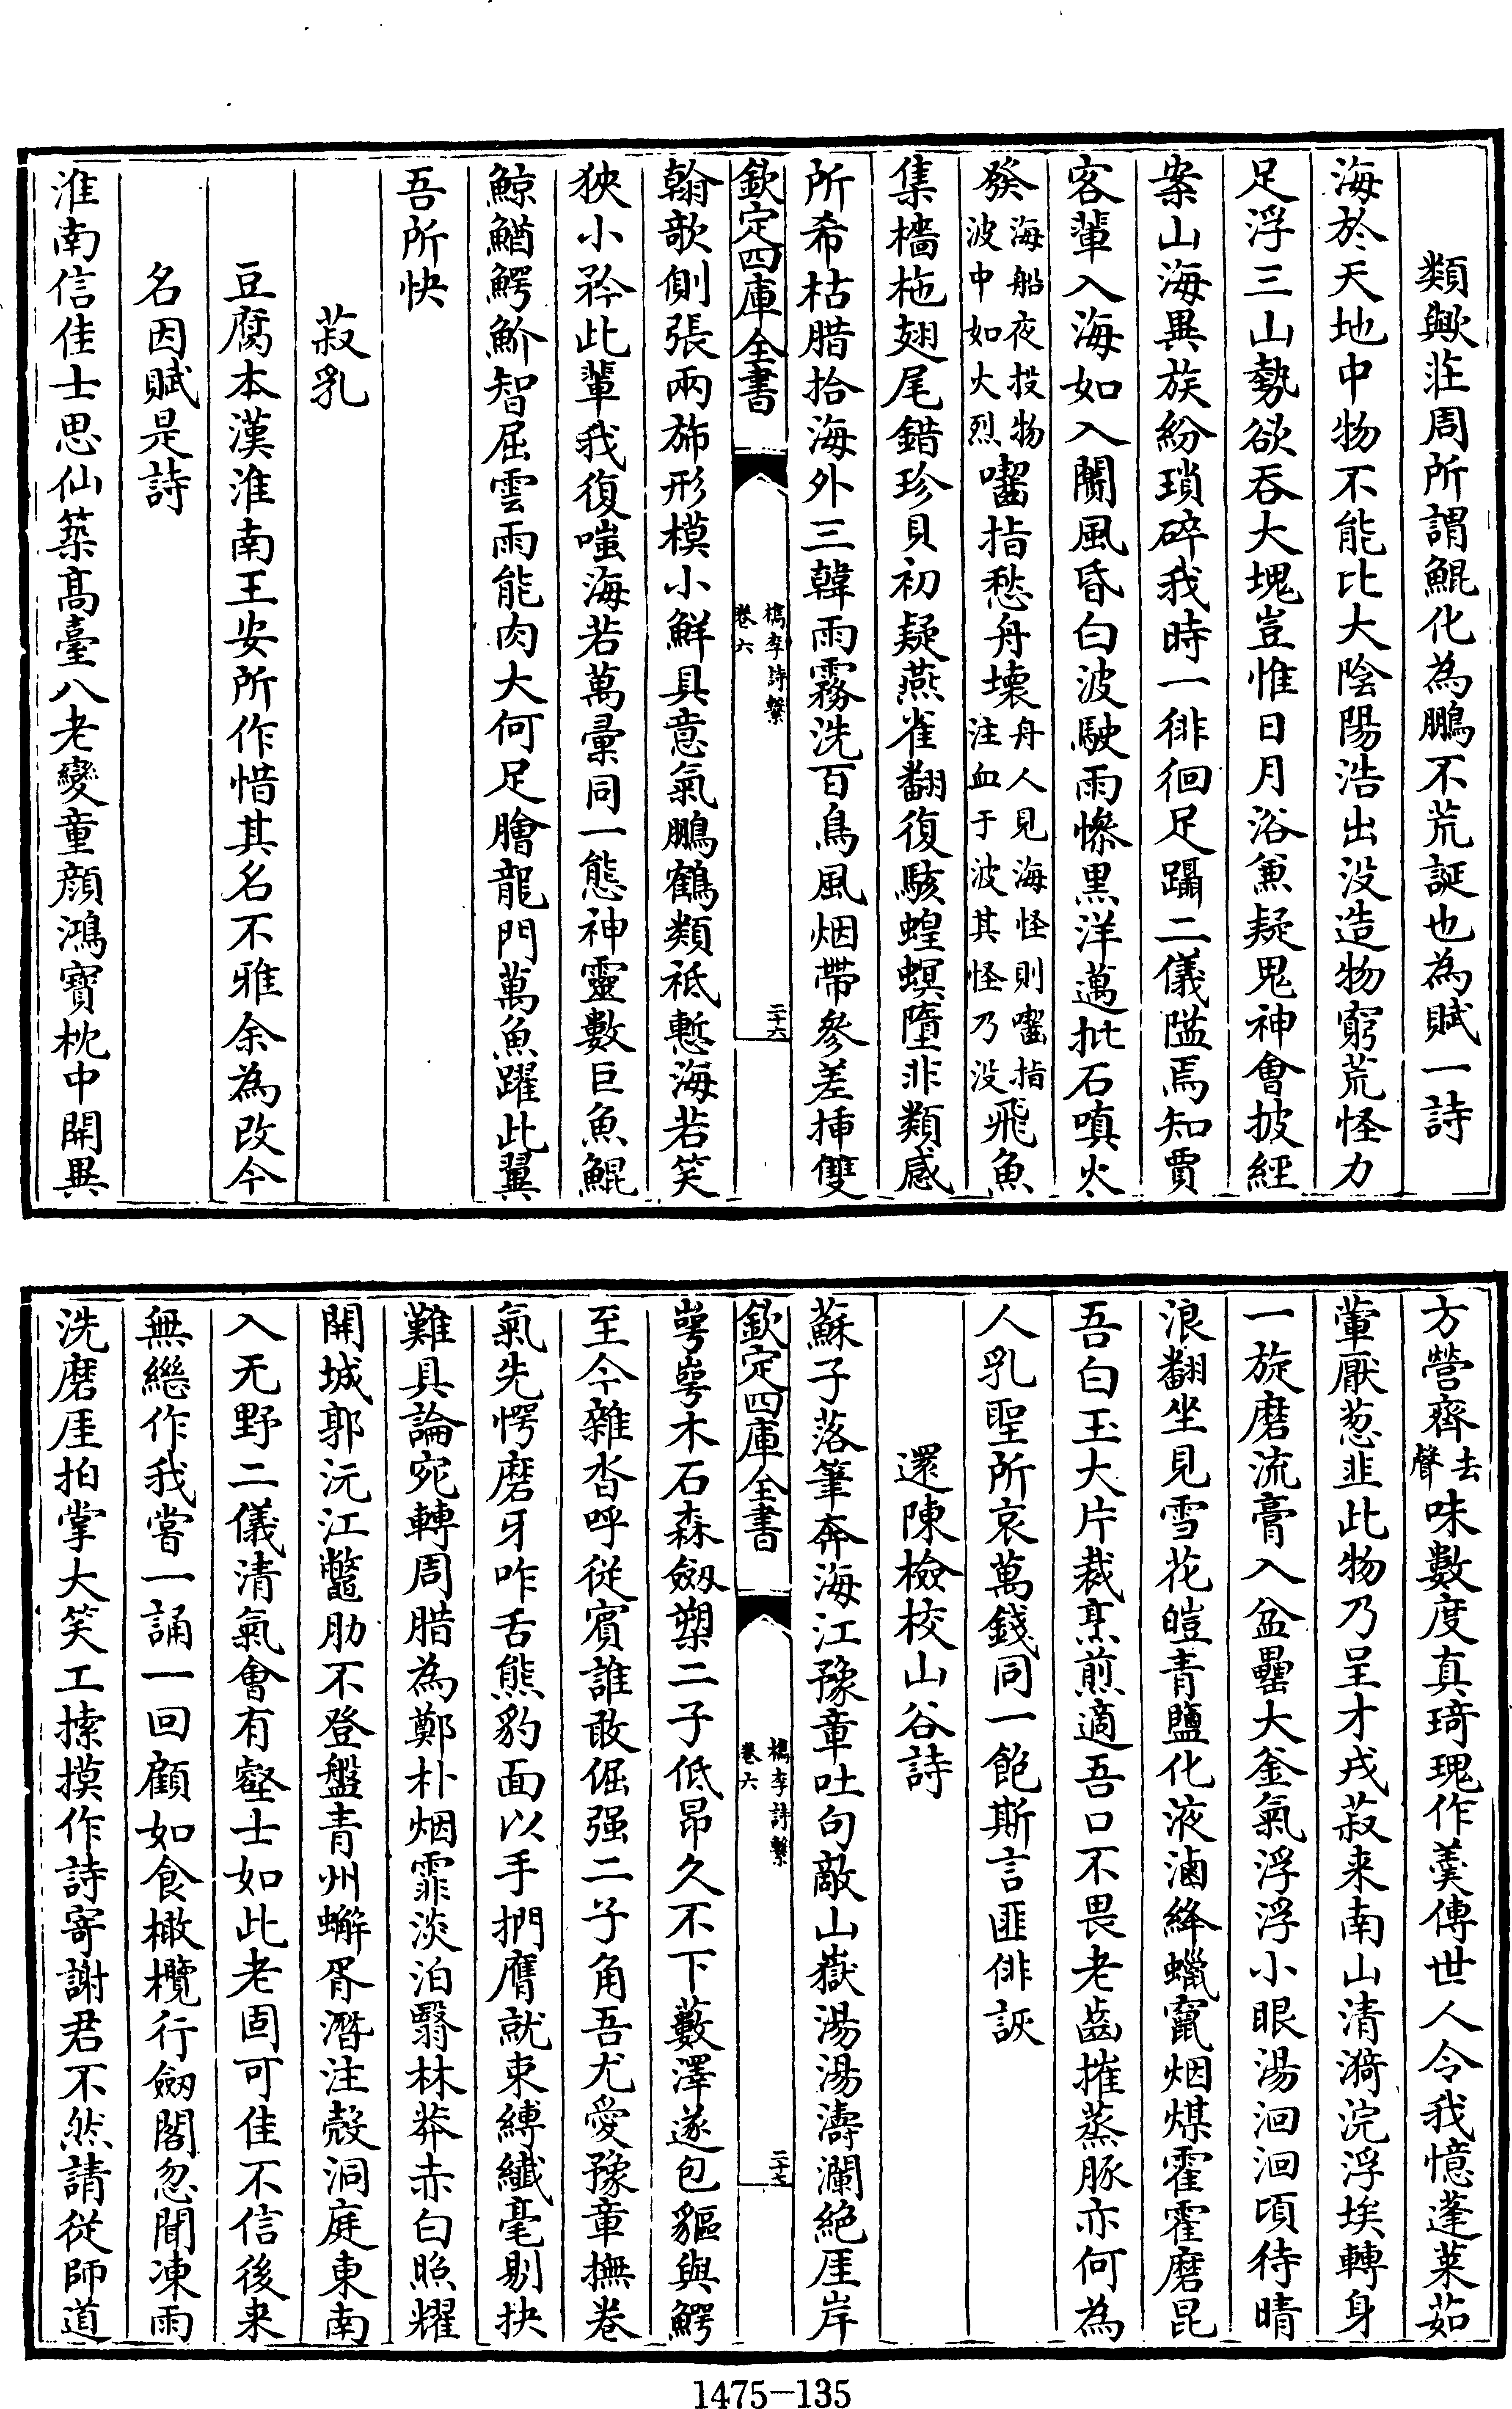 類歟莊周所謂鯤化為鵬不荒誕也為賦一詩
海於天地中物不能比大陰陽浩出没造物窮荒怪力
足浮三山勢欲吞大塊豈惟日月浴兼疑鬼神會披經
案山海異族紛瑣碎我時一徘徊足躡二儀隘焉知賈
客輩入海如入闠風昏白波駛雨慘黒洋邁批石嗔火
發海船夜投物波中如火烈囓指愁舟壊舟人見海怪則囓指注血于波其怪乃没飛魚
集檣柂翅尾錯珍貝初疑燕雀翻復駭蝗螟墮非類感
所希枯腊拾海外三韓雨霧洗百鳥風烟帶參差揷雙
欽定四庫全書
檇李詩繫
卷六
二十六
翰欹側張兩斾形模小鮮具意氣鵬鶴類祗慙海若笑
狹小矜此輩我復嗤海若萬彚同一態神靈數巨魚鯤
鯨鰌鰐魪智屈雲雨能肉大何足膾龍門萬魚躍此翼
吾所快
菽乳
豆腐本漢淮南王安所作惜其名不雅余為改今
名因賦是詩
淮南信佳士思仙築髙臺八老變童顔鴻寳枕中開異
方營齊去聲味數度真琦瑰作羹傳世人令我憶蓬萊茹
葷厭葱韭此物乃呈才戎菽来南山清漪浣浮埃轉身
一旋磨流膏入盆罍大釜氣浮浮小眼湯洄洄頃待晴
浪翻坐見雪花皚青鹽化液滷絳蠟竄烟煤霍霍磨昆
吾白玉大片裁烹煎適吾口不畏老齒摧蒸豚亦何為
人乳聖所哀萬錢同一飽斯言匪俳詼
還陳檢校山谷詩
蘇子落筆奔海江豫章吐句敵山嶽湯湯濤瀾絶厓岸
欽定四庫全書
檇李詩繫
卷六
二十七
崿崿木石森劔槊二子低昂久不下藪澤遂包貙與鰐
至今雜沓呼從賓誰敢倔强二子角吾尤愛豫章撫卷
氣先愕磨牙咋舌熊豹面以手捫膺就束縛纎毫剔抉
難具論宛轉周腊為鄭朴烟霏淡泊翳林莽赤白照耀
開城郭沅江鼈肋不登盤青州蠏胥潛注殻洞庭東南
入无野二儀清氣會有壑士如此老固可佳不信後来
無繼作我嘗一誦一回顧如食橄欖行劔閣忽聞凍雨
洗磨厓拍掌大笑工摸摸作詩寄謝君不然請從師道
1475-135